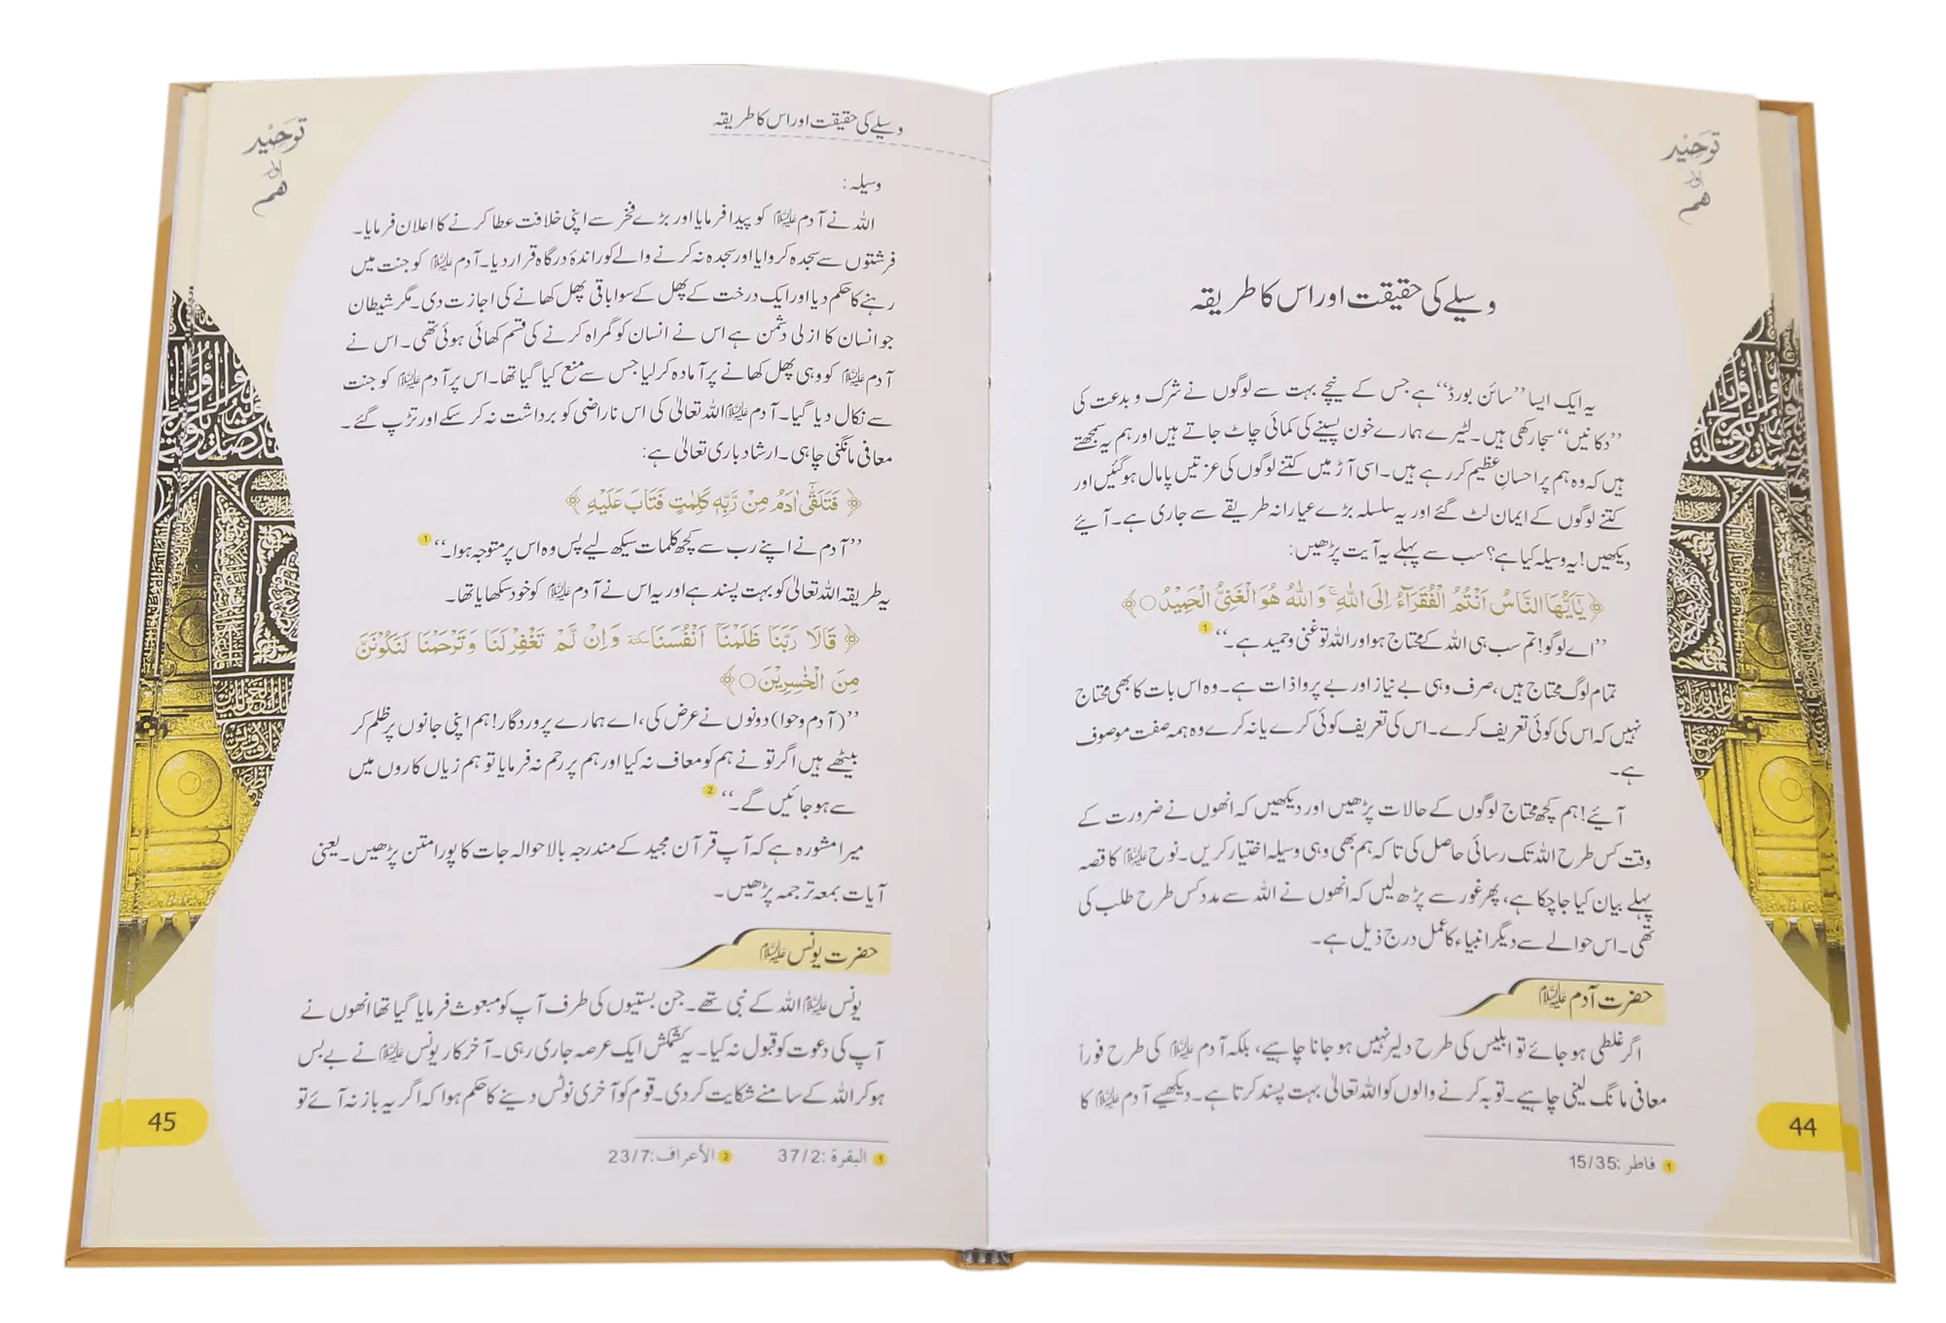 توحید
اور
ھم
وسیلے کی حقیقت اور اس کا طریقہ
یہ ایک ایسا ’’سائن بورڈ‘‘ ہے جس کے نیچے بہت سے لوگوں نے شرک و بدعت کی
’’دکانیں‘‘ سجا رکھی ہیں۔ لٹیرے ہمارے خون پسینے کی کمائی چاٹ جاتے ہیں اور ہم یہ سمجھتے
ہیں کہ وہ ہم پر احسانِ عظیم کر رہے ہیں۔ اسی آڑ میں کتنے لوگوں کی عزتیں پامال ہو گئیں اور
کتنے لوگوں کے ایمان لٹ گئے اور یہ سلسلہ بڑے عیارانہ طریقے سے جاری ہے۔ آیئے
دیکھیں! یہ وسیلہ کیا ہے؟ سب سے پہلے یہ آیت پڑھیں:
﴿ يٰٓاَيُّهَا النَّاسُ اَنْتُمُ الْفُقَرَآءُ اِلَى اللّٰهِ ۚ وَاللّٰهُ هُوَ الْغَنِىُّ الْحَمِيْدُ○﴾
’’اے لوگو! تم سب ہی اللہ کے محتاج ہو اور اللہ تو غنی و حمید ہے۔‘‘ 1
تمام لوگ محتاج ہیں، صرف وہی بے نیاز اور بے پروا ذات ہے۔ وہ اس بات کا بھی محتاج
نہیں کہ اس کی کوئی تعریف کرے۔ اس کی تعریف کوئی کرے یا نہ کرے وہ ہمہ صفت موصوف
ہے۔
آیئے! ہم کچھ محتاج لوگوں کے حالات پڑھیں اور دیکھیں کہ انھوں نے ضرورت کے
وقت کس طرح اللہ تک رسائی حاصل کی تاکہ ہم بھی وہی وسیلہ اختیار کریں۔ نوح علیہ السلام کا قصہ
پہلے بیان کیا جا چکا ہے، پھر غور سے پڑھ لیں کہ انھوں نے اللہ سے مدد کس طرح طلب کی
تھی۔ اس حوالے سے دیگر انبیاء کا عمل درج ذیل ہے۔
حضرت آدم علیہ السلام
اگر غلطی ہو جائے تو ابلیس کی طرح دلیر نہیں ہو جانا چاہیے، بلکہ آدم علیہ السلام کی طرح فوراً
معافی مانگ لینی چاہیے۔ توبہ کرنے والوں کو اللہ تعالیٰ بہت پسند کرتا ہے۔ دیکھیے آدم علیہ السلام کا
1 فاطر :15/35
44
توحید
اور
ھم
وسیلے کی حقیقت اور اس کا طریقہ
وسیلہ:
اللہ نے آدم علیہ السلام کو پیدا فرمایا اور بڑے فخر سے اپنی خلافت عطا کرنے کا اعلان فرمایا۔
فرشتوں سے سجدہ کروایا اور سجدہ نہ کرنے والے کو راندۂ درگاہ قرار دیا۔ آدم علیہ السلام کو جنت میں
رہنے کا حکم دیا اور ایک درخت کے پھل کے سوا باقی پھل کھانے کی اجازت دی۔ مگر شیطان
جو انسان کا ازلی دشمن ہے اس نے انسان کو گمراہ کرنے کی قسم کھائی ہوئی تھی۔ اس نے
آدم علیہ السلام کو وہی پھل کھانے پر آمادہ کر لیا جس سے منع کیا گیا تھا۔ اس پر آدم علیہ السلام کو جنت
سے نکال دیا گیا۔ آدم علیہ السلام اللہ تعالیٰ کی اس ناراضی کو برداشت نہ کر سکے اور تڑپ گئے۔
معافی مانگنی چاہی۔ ارشاد باری تعالیٰ ہے:
﴿ فَتَلَقّٰٓى اٰدَمُ مِنْ رَّبِّهٖ كَلِمٰتٍ فَتَابَ عَلَيْهِ ﴾
’’آدم نے اپنے رب سے کچھ کلمات سیکھ لیے پس وہ اس پر متوجہ ہوا۔‘‘ 1
یہ طریقہ اللہ تعالیٰ کو بہت پسند ہے اور یہ اس نے آدم علیہ السلام کو خود سکھایا تھا۔
﴿ قَالَا رَبَّنَا ظَلَمْنَآ اَنْفُسَنَا سکتة وَاِنْ لَّمْ تَغْفِرْ لَنَا وَتَرْحَمْنَا لَنَكُوْنَنَّ
مِنَ الْخٰسِرِيْنَ○﴾
’’(آدم و حوا) دونوں نے عرض کی، اے ہمارے پروردگار! ہم اپنی جانوں پر ظلم کر
بیٹھے ہیں اگر تو نے ہم کو معاف نہ کیا اور ہم پر رحم نہ فرمایا تو ہم زیاں کاروں میں
سے ہو جائیں گے۔‘‘ 2
میرا مشورہ ہے کہ آپ قرآن مجید کے مندرجہ بالا حوالہ جات کا پورا متن پڑھیں۔ یعنی
آیات بمعہ ترجمہ پڑھیں۔
حضرت یونس علیہ السلام
یونس علیہ السلام اللہ کے نبی تھے۔ جن بستیوں کی طرف آپ کو مبعوث فرمایا گیا تھا انھوں نے
آپ کی دعوت کو قبول نہ کیا۔ یہ کشمکش ایک عرصہ جاری رہی۔ آخر کار یونس علیہ السلام نے بے بس
ہو کر اللہ کے سامنے شکایت کر دی۔ قوم کو آخری نوٹس دینے کا حکم ہوا کہ اگر یہ باز نہ آئے تو
1 البقرة :37/2 2 الأعراف:23/7
45